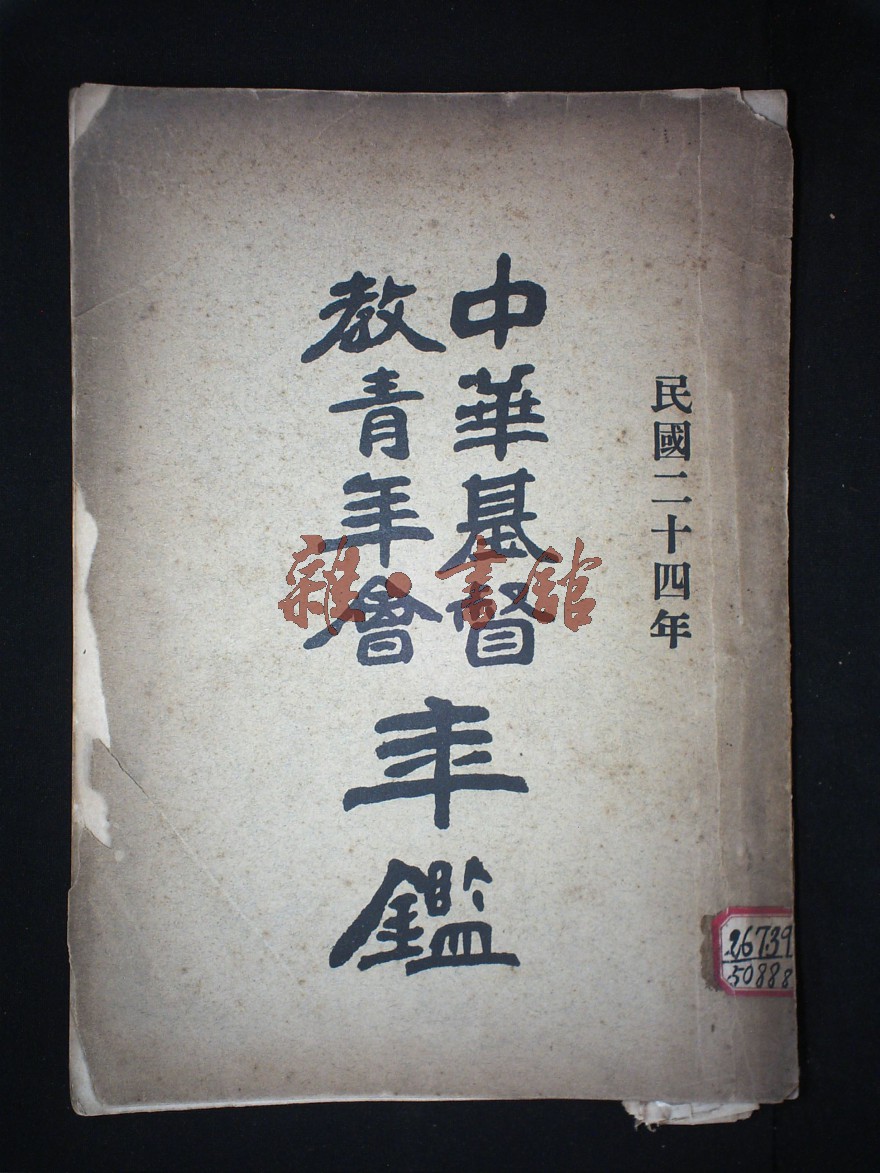 民國二十四年
中華基督
教青年會
年鑑
雜·書館
26739
50888